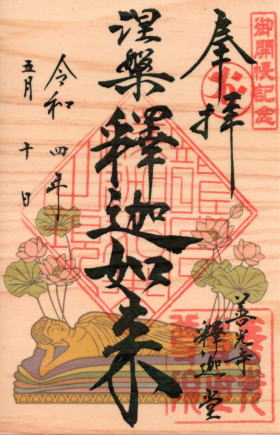 御開帳記念
奉拝
涅槃
釋迦如来
善光寺
釋迦堂
令和四年
五月十日